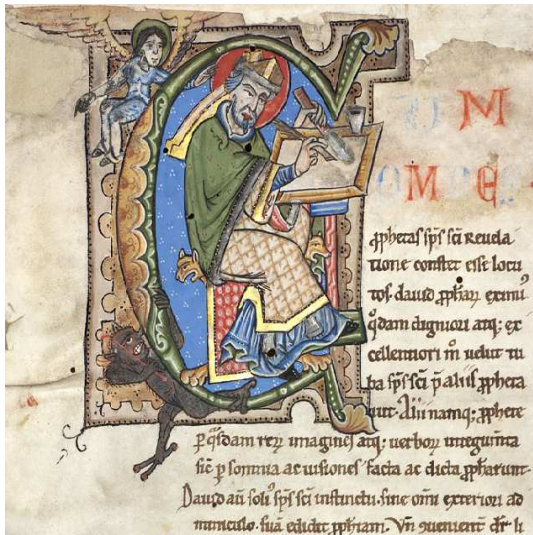 C U M
O M N E S
ꝓphetas sp̄s sc̄i reuela
tione constet esse locu
tos. dauid ꝓphar̄ eximiꝰ
qͦdam digniori atq; ex
cellentiori m̊ uelut tu
ba sp̄s sc̄i p̄ aliis ꝓpheta
uit. Alii namq; ꝓphete
ꝑ qͣsdam rerꝝ imagines atq; uerboꝝ integum̄ta
sic̄ ꝑ somnia ac uisiones facta ac dicta ꝓpharunt.
Dauid aū soliꝰ sp̄s sc̄i instinctu. sine omni exteriori ad
miniculo. suā edidit ꝓphiam. Vn̄ ꝯuenient̄ dr̄ li